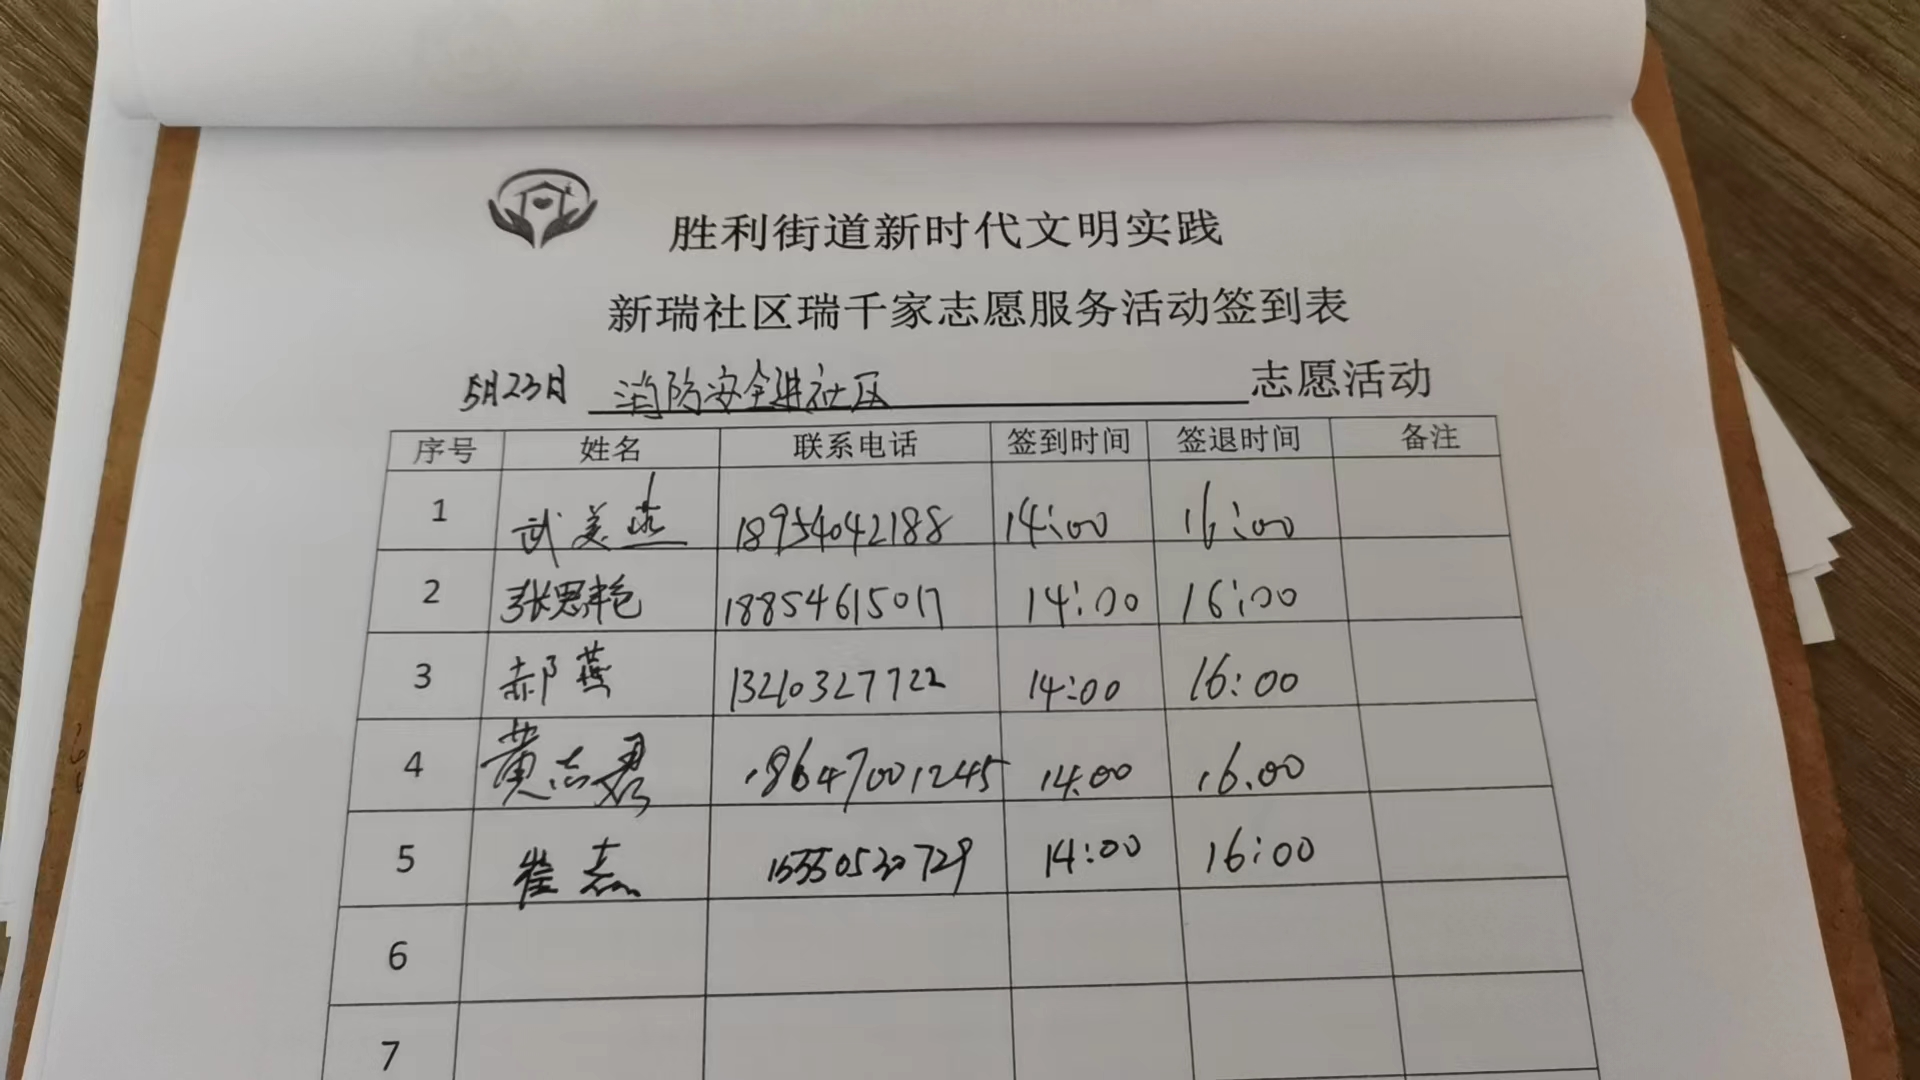 胜利街道新时代文明实践
新瑞社区瑞千家志愿服务活动签到表
5月23日 消防安全进社区 志愿活动
序号 姓名 联系电话 签到时间 签退时间 备注
1 武美燕 18954042188 14:00 16:00
2 张思艳 18854615017 14:00 16:00
3 郝燕 13210327722 14:00 16:00
4 黄志君 18647001245 14:00 16.00
5 崔志 15550530729 14:00 16:00
6
7